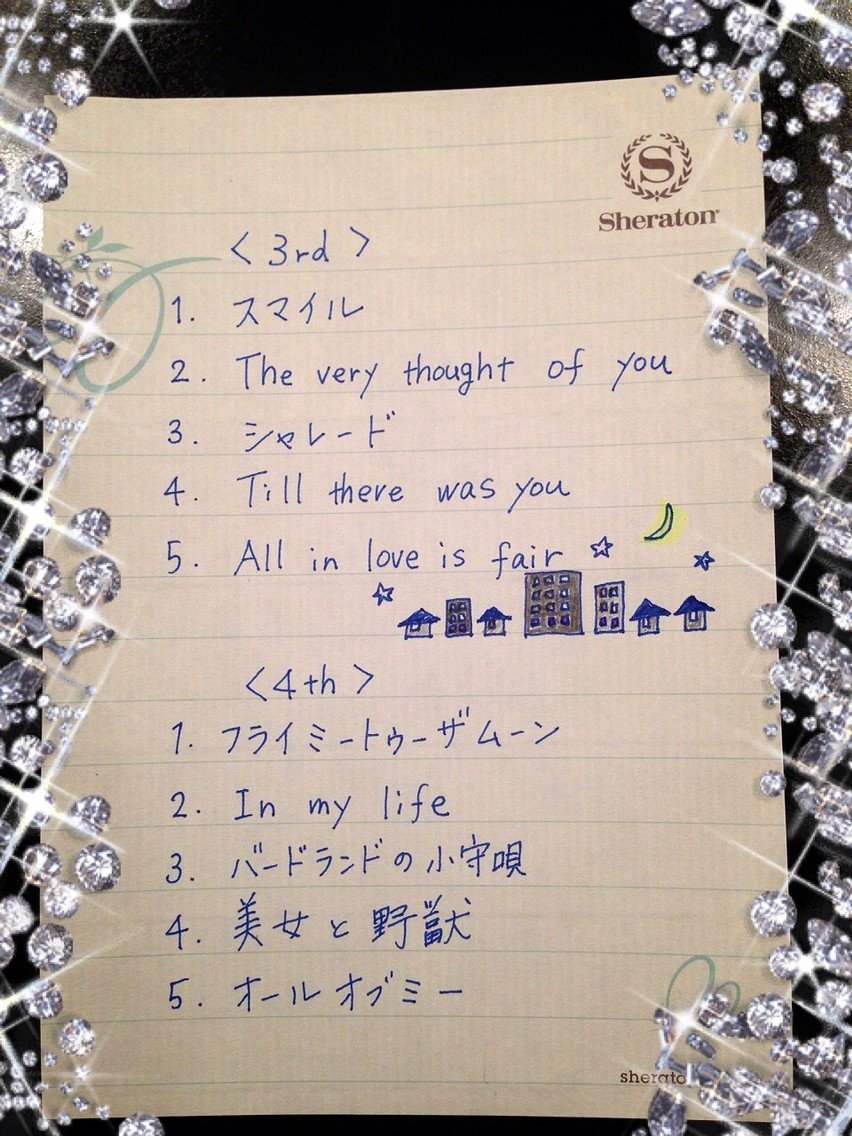 S
Sheraton
<3rd>
1. スマイル
2. The very thought of you
3. シャレード
4. Till there was you
5. All in love is fair
<4th>
1. フライミートゥーザムーン
2. In my life
3. バードランドの小守唄
4. 美女と野獣
5. オールオブミー
sherato